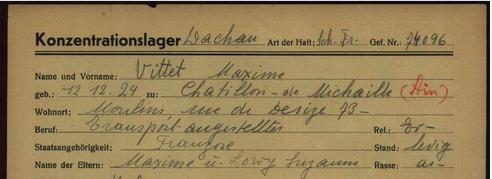 Konzentrationslager Dachau Art der Haft: Sch. Fr. Gef. Nr.: 74096
Name und Vorname: Vittet Maxime
geb.: 12.12.24 zu: Chatillon-de Michaille (Ain)
Wohnort: Moulins rue de Desize 73-
Beruf: Transportangestellter Rel.:
Staatsangehörigkeit: Franzose Stand: ledig
Name der Eltern: Maxime u. Lowy Suzanne Rasse: ar-